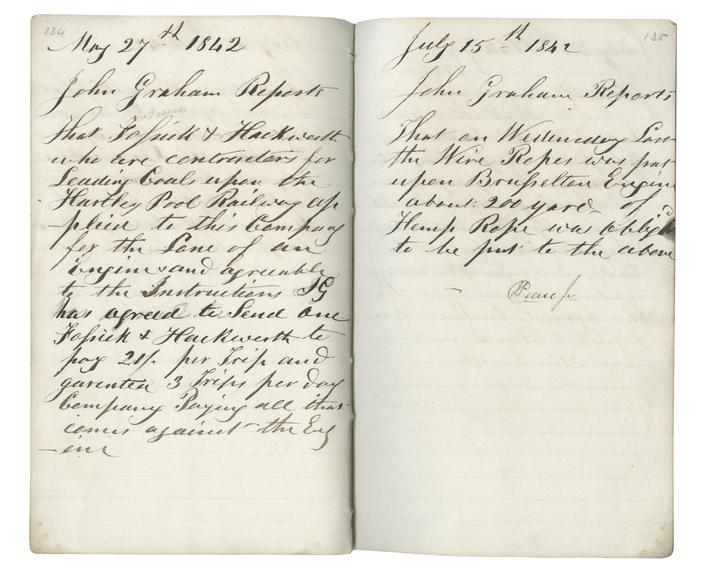 134
May 27th 1842
John Graham Reports
That Fossick & Hackworth
who are contractors for
Leading Coals upon the
Hartley Pool Railway ap
-plied to this Company
for the Lone of an
Engine and agreeable
to the Instructions JG
has agreed to Send one
Fossick & Hackworth to
pay 21/- per Trip and
garentee 3 Trips per day
Company Paying all that
comes against the Eng
-ine
135
July 15th 1842
John Graham Reports
That on Wednesday Last
the Wire Ropes was put
upon Brusselton Engine
about 200 yard of
Hemp Rope was obliged
to be put to the above